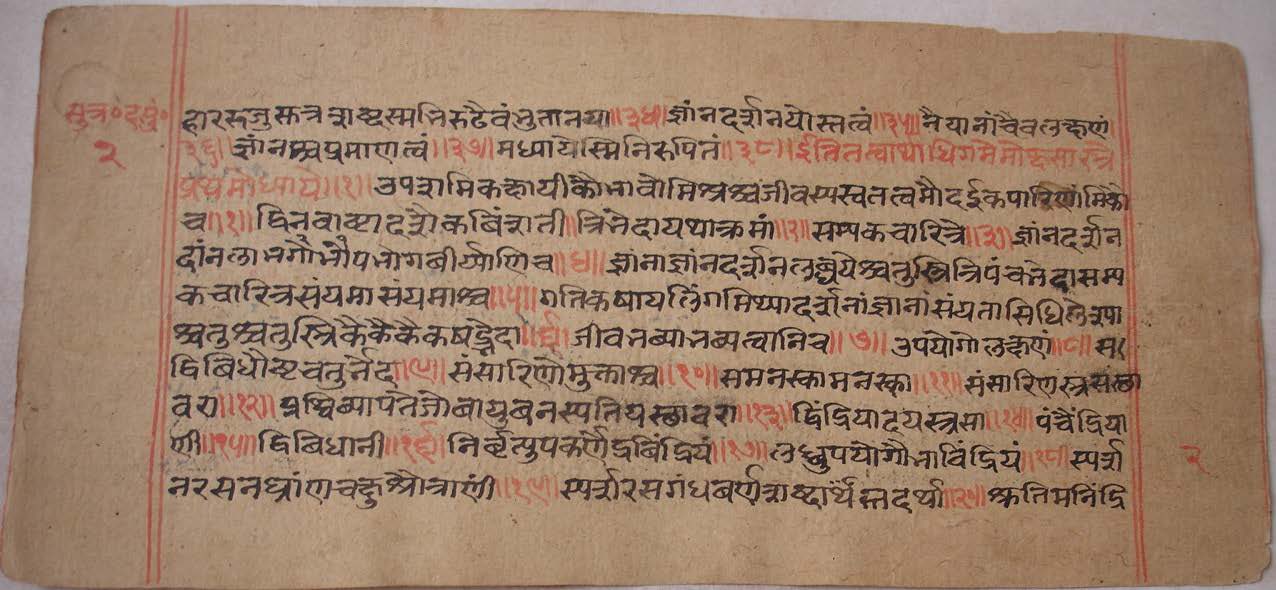 सुत्र॰दसु॰
२
हारसूजुसूत्रशब्दसमभिरूढैवंभुतानया॥३४॥ज्ञांनदर्शनयोस्तत्वं॥३५॥नैयानांचैवलक्षणं
॥३६॥ज्ञांनश्चप्रमाणत्वं॥३७॥मध्यायेस्मिनिरुपितं॥३८॥ईतितत्वार्थाधिगमेमोक्षसास्त्रे
प्रथमोध्यायो॥१॥उपशमिकक्षायीकौभावोमिश्रश्चजीवस्यस्वतत्वमौदईकपारिणांमिकौ
च॥१॥द्विनवाष्टादशैकविंशती॥त्रिभेदायथाक्रमां॥२॥सम्यकचारित्रे॥३॥ज्ञांनदर्शन
दांनलाभगौभौपभोगबीर्याणिच॥४॥ज्ञांनाज्ञांनदर्शनलब्धयेश्चतुस्त्रित्रिपंचभेदासम्य
कचारित्रसंयमासंयमाश्च॥५॥गतिकषायलिंगमिथ्यादर्शनांज्ञानांसंयतासिधिलेश्या
श्चतुश्चतुस्त्रिकैकैकैकषड्भेदा॥६॥जीवभब्याभब्यत्वानिच॥७॥उपयोगोलक्षणं॥८॥स
द्विबिधौष्टचतुर्भेद॥९॥संसारिणोमुक्ताश्च॥१०॥समनस्कामनस्का॥११॥संसारिणस्त्रसस्छा
वरा॥१२॥प्रथ्विब्यापतेजोबायुबनस्पतियस्छावरा॥१३॥द्विंद्रियादयस्त्रसा॥१४॥पंचैंद्रिया
णी॥१५॥द्विबिधानी॥१६॥निर्वृत्युपकर्णेद्रबिंद्रियं॥१७॥लब्धुपयोगौभाविंद्रियं॥१८॥स्पर्श
नरसनघ्रांणचक्षुश्रोत्राणी॥१९॥स्पर्शरसगंधबर्णशब्दार्थस्तदर्था॥२०॥श्रुतिमनिंद्रि
२